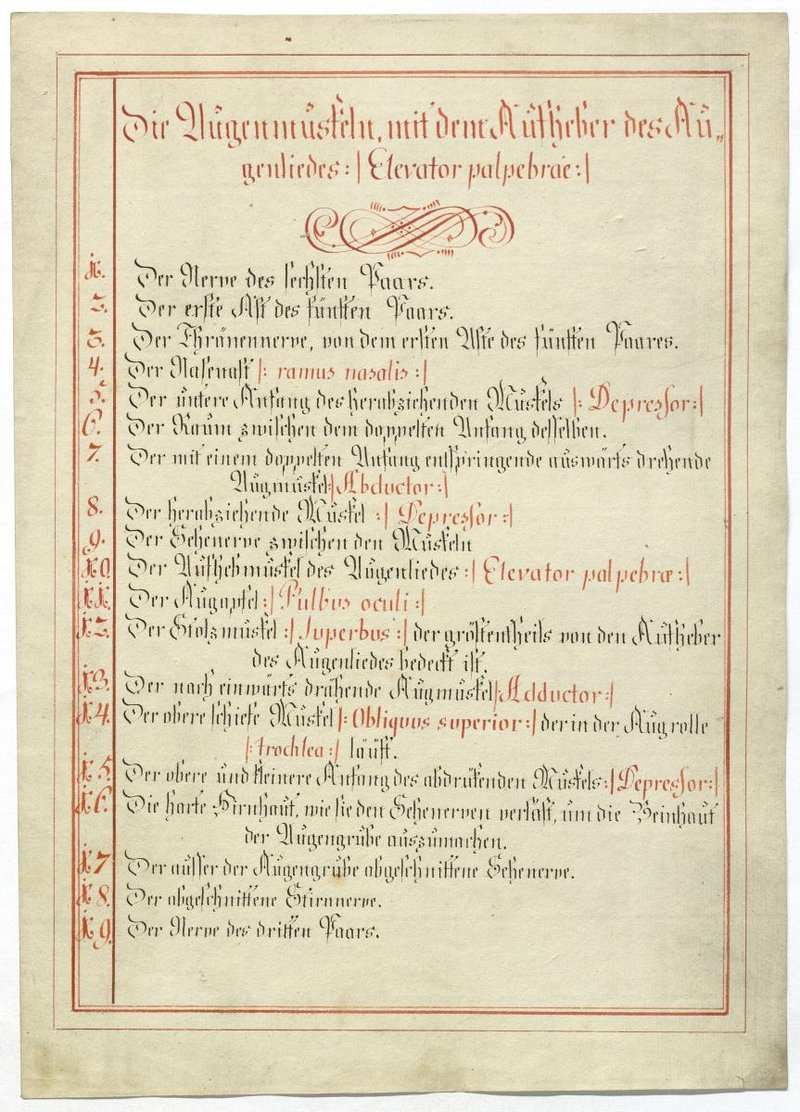 Die Augenmuskeln, mit dem Aufheber des Au„
genliedes :| Elevator palpebrae :|
1. Der Nerve des sechsten Paars.
2. Der erste Ast des fünften Paars.
3. Der Thränennerve, von dem ersten Aste des fünften Paares.
4. Der Nasenast |: ramus nasalis :|
5. Der untere Anfang des herabziehenden Muskels |: Depressor :|
6. Der Raum zwischen dem doppelten Anfang desselben.
7. Der mit einem doppelten Anfang entspringende auswärts drehende
Augmuskel :| Abductor :|
8. Der herabziehende Muskel :| Depressor :|
9. Der Sehenerve zwischen den Muskeln
10. Der Aufhebmuskel des Augenliedes :| Elevator palpebræ :|
11. Der Augapfel :| Pulbus oculi :|
12. Der Stolzmuskel :| Superbus :| der gröstentheils von den Aufheber
des Augenliedes bedeckt ist.
13. Der nach einwärts drähende Augmuskel |: Adductor :|
14. Der obere schiefe Muskel |: Obliquus superior :| der in der Augrolle
|: trochlea :| läuft.
15. Der obere und kleinere Anfang des abdrükenden Muskels :| Depressor :|
16. Die harte Hirnhaut, wie sie den Sehenerven verläst, um die Beinhaut
der Augengrube auszumachen.
17. Der ausser der Augengrube abgeschnittene Sehenerve.
18. Der abgeschnittene Stirnnerve.
19. Der Nerve des dritten Paars.